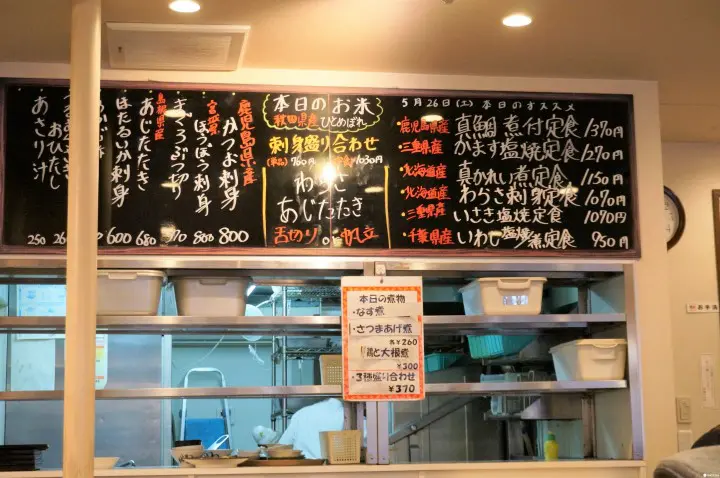 鹿児島県産
かつお刺身 800
宮城県
ほうぼう刺身 800
まぐろぶつ切り 770
島根県産
あじたたき 680
ほたるいか刺身 600
おひたし 260
あさり汁 250
本日のお米
秋田県産 ひとめぼれ
刺身盛り合わせ
(単品)760円 定食1030円
わらさ
あじたたき
舌切り or 帆立
5月26日(土) 本日のオススメ
・鹿児島県産 真鯛煮付定食 1370円
・三重県産 かます塩焼定食 1270円
・北海道産 真かれい煮定食 1150円
・北海道産 わらさ刺身定食 1070円
・三重県産 いさき塩焼定食 1070円
・千葉県産 いわし塩焼煮定食 950円
本日の煮物
・なす煮
・さつまあげ煮
各¥260
・鶏と大根煮
¥300
・3種盛り合わせ
¥370